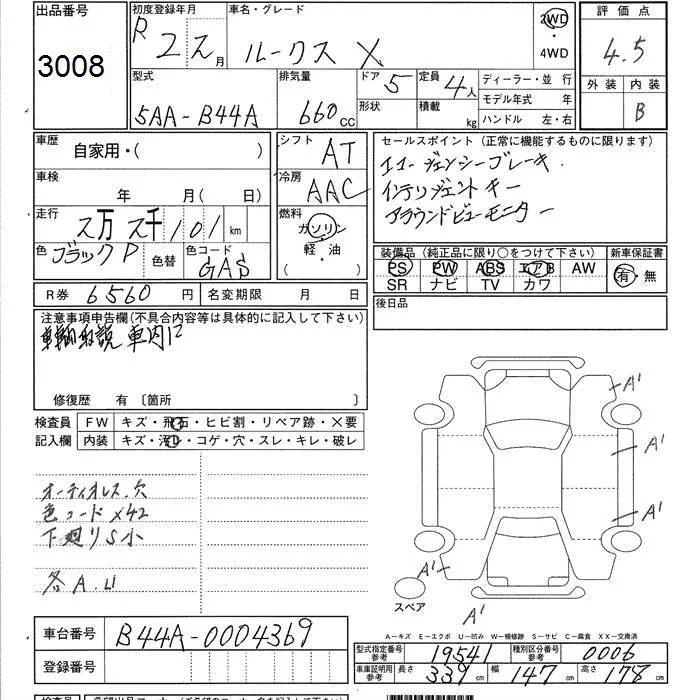 出品番号 初度登録年月 車名・グレード 2WD 評価点
3008 R 2 年 月 ルークス X 4WD 4.5
型式 排気量 ドア 5 定員 4人 ディーラー・並行 外装 内装
5AA-B44A 660cc 形状 積載 kg モデル年式 年 B
ハンドル 左・右
車歴 自家用・( ) シフト AT セールスポイント (正常に機能するものに限ります)
エマージェンシーブレーキ
車検 年 月( 日) 冷房 AAC インテリジェントキー
走行 2万2千101km 燃料 ガソリン アラウンドビューモニター
軽・油
( )
色 ブラックP 色替 色コード GAS 装備品 (純正品に限り○をつけて下さい) 新車保証書
PS PW ABS エアB AW 有・無
SR ナビ TV カワ
R券 6560円 名変期限 月 日 後日品
注意事項申告欄(不具合内容等は具体的に記入して下さい)
車両取説 車内に
修復歴 有 〔箇所
検査員 FW キズ・飛石・ヒビ割・リペア跡・×要
記入欄 内装 キズ・汚レ・コゲ・穴・スレ・キレ・破レ
A1
A1
オーディオレス、穴
色コードX42 A1
下廻りS小
各A.U A1
スペア
A1
A-キズ E-エクボ U-凹み W-補修跡 S-サビ C-腐食 XX-交換済
車台番号 B44A-0004369 型式指定番号 参考 19541 種別区分番号 参考 0006
登録番号 車庫証明用 参考 長さ 339cm 幅 147cm 高さ 178cm
検査員